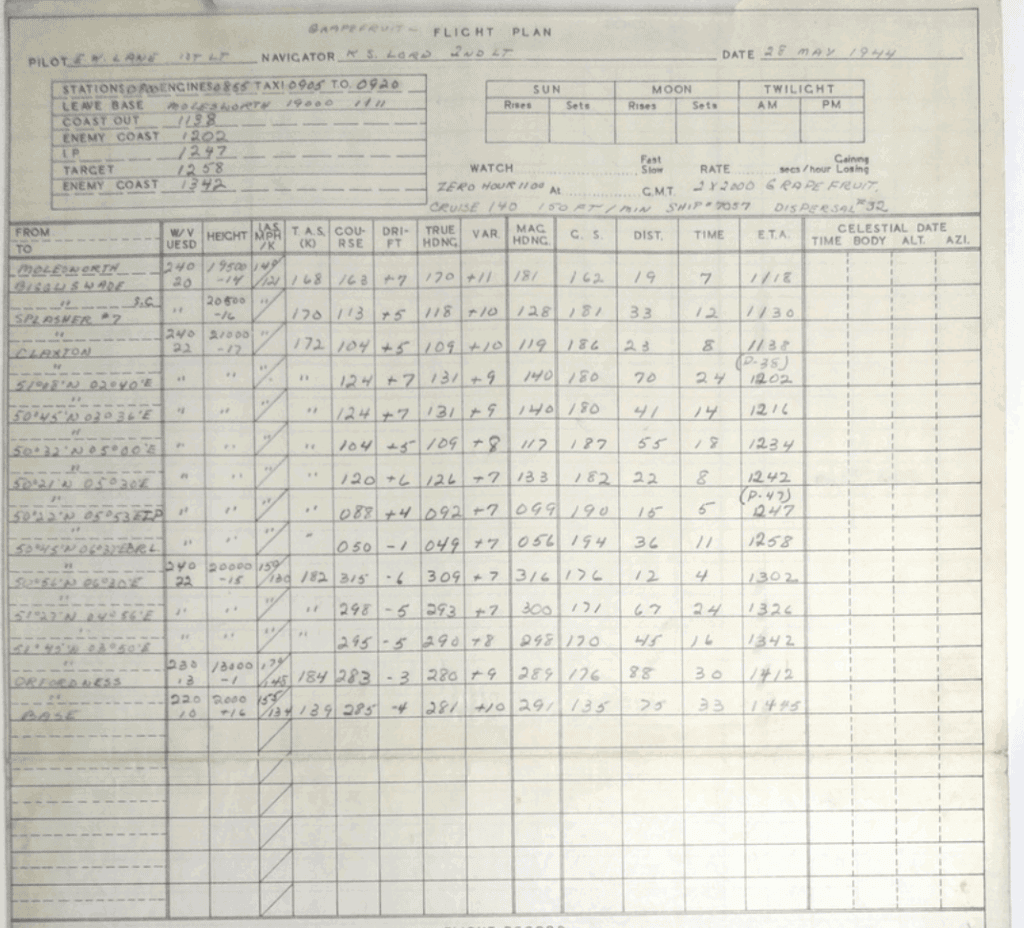 GRAPEFRUIT - FLIGHT PLAN
PILOT E.W. LANE 1ST LT NAVIGATOR K S. LORD 2ND LT DATE 28 MAY 1944
STATIONS ENGINES 0855 TAXI 0905 T.O. 0920
LEAVE BASE MOLESWORTH 19000 1111
COAST OUT 1138
ENEMY COAST 1202
I.P 1247
TARGET 1258
ENEMY COAST 1342
SUN MOON TWILIGHT
Rises Sets Rises Sets AM PM
WATCH Fast Slow RATE secs/hour Gaining Losing
ZERO HOUR 1100 At G.M.T. 2 X 2000 GRAPEFRUIT,
CRUISE 140 150 FT/MIN SHIP #7057 DISPERSAL #32
FROM TO W/V UESD HEIGHT I.A.S. MPH /K T.A.S. (K) COURSE DRIFT TRUE HDNG. VAR. MAG. HDNG. G. S. DIST. TIME E.T.A. CELESTIAL DATE TIME BODY ALT. AZI.
MOLESWORTH 240 19500 149/
BIGGLISWADE 20 -14 /121 168 163 +7 170 +11 181 162 19 7 1118
" S.C. " 20500 "
SPLASHER #7 -16 170 113 +5 118 +10 128 181 33 12 1130
" 240 21000 "
CLAXTON 22 -17 172 104 +5 109 +10 119 186 23 8 1138
" (P-38)
51°18'N 02°40'E " " " " 124 +7 131 +9 140 180 70 24 1202
"
50°45'N 03°36'E " " " " 124 +7 131 +9 140 180 41 14 1216
"
50°32'N 05°00'E " " " " 104 +5 109 +8 117 187 55 18 1234
"
50°21'N 05°30E " " " " 120 +6 126 +7 133 182 22 8 1242
" (P-47)
50°22'N 05°53'E I.P " " " " 088 +4 092 +7 099 190 15 5 1247
"
50°45'N 06°37'E " " " " 050 -1 049 +7 056 194 36 11 1258
" 240 20000 159/
50°56'N 06°30'E 22 -15 /130 182 315 -6 309 +7 316 176 12 4 1302
"
51°27'N 04°56'E " " " " 298 -5 293 +7 300 171 67 24 1326
"
51°45'N 03°50'E " " " " 295 -5 290 +8 298 170 45 16 1342
" 230 13000 179/
ORFORDNESS 13 -1 /145 184 283 -3 280 +9 289 176 88 30 1412
" 220 2000 155/
BASE 10 +16 /134 139 285 -4 281 +10 291 135 75 33 1445